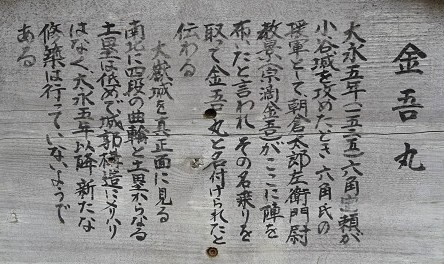 金吾丸
大永五年(一五二五)六角定頼が
小谷城を攻めたとき六角氏の
援軍として朝倉太郎左衛門尉
教景(宗滴金吾)がここに陣を
布いたと言われその名乗りを
取って金吾丸と名付けられたと
伝わる
大嶽城を真正面に見る
南北に四段の曲輪と土塁からなる
土塁は低めで城郭構造に
はなく、大永五年以降新たな
修築は行っていないようで
ある